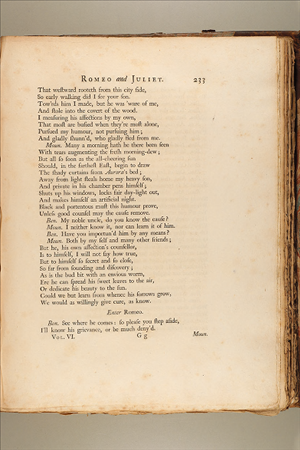 ROMEO and JULIET. 233
That weſtward rooteth from this city ſide,
So early walking did I ſee your ſon.
Tow'rds him I made, but he was 'ware of me,
And ſtole into the covert of the wood.
I meaſuring his affections by my own,
That moſt are buſied when they're moſt alone,
Purſued my humour, not purſuing him;
And gladly ſhunn'd, who gladly fled from me.
Moun. Many a morning hath he there been ſeen
With tears augmenting the freſh morning-dew;
But all ſo ſoon as the all-cheering ſun
Should, in the fartheſt Eaſt, begin to draw
The ſhady curtains from Aurora's bed;
Away from light ſteals home my heavy ſon,
And private in his chamber pens himſelf;
Shuts up his windows, locks fair day-light out,
And makes himſelf an artificial night.
Black and portentous muſt this humour prove,
Unleſs good counſel may the cauſe remove.
Ben. My noble uncle, do you know the cauſe?
Moun. I neither know it, nor can learn it of him.
Ben. Have you importun'd him by any means?
Moun. Both by my ſelf and many other friends;
But he, his own affection's counſellor,
Is to himſelf, I will not ſay how true,
But to himſelf ſo ſecret and ſo cloſe,
So far from ſounding and diſcovery;
As is the bud bit with an envious worm,
Ere he can ſpread his ſweet leaves to the air,
Or dedicate his beauty to the ſun.
Could we but learn from whence his ſorrows grow,
We would as willingly give cure, as know.
Enter Romeo.
Ben. See where he comes: ſo pleaſe you ſtep aſide,
I'll know his grievance, or be much deny'd.
VOL. VI. G g Moun.